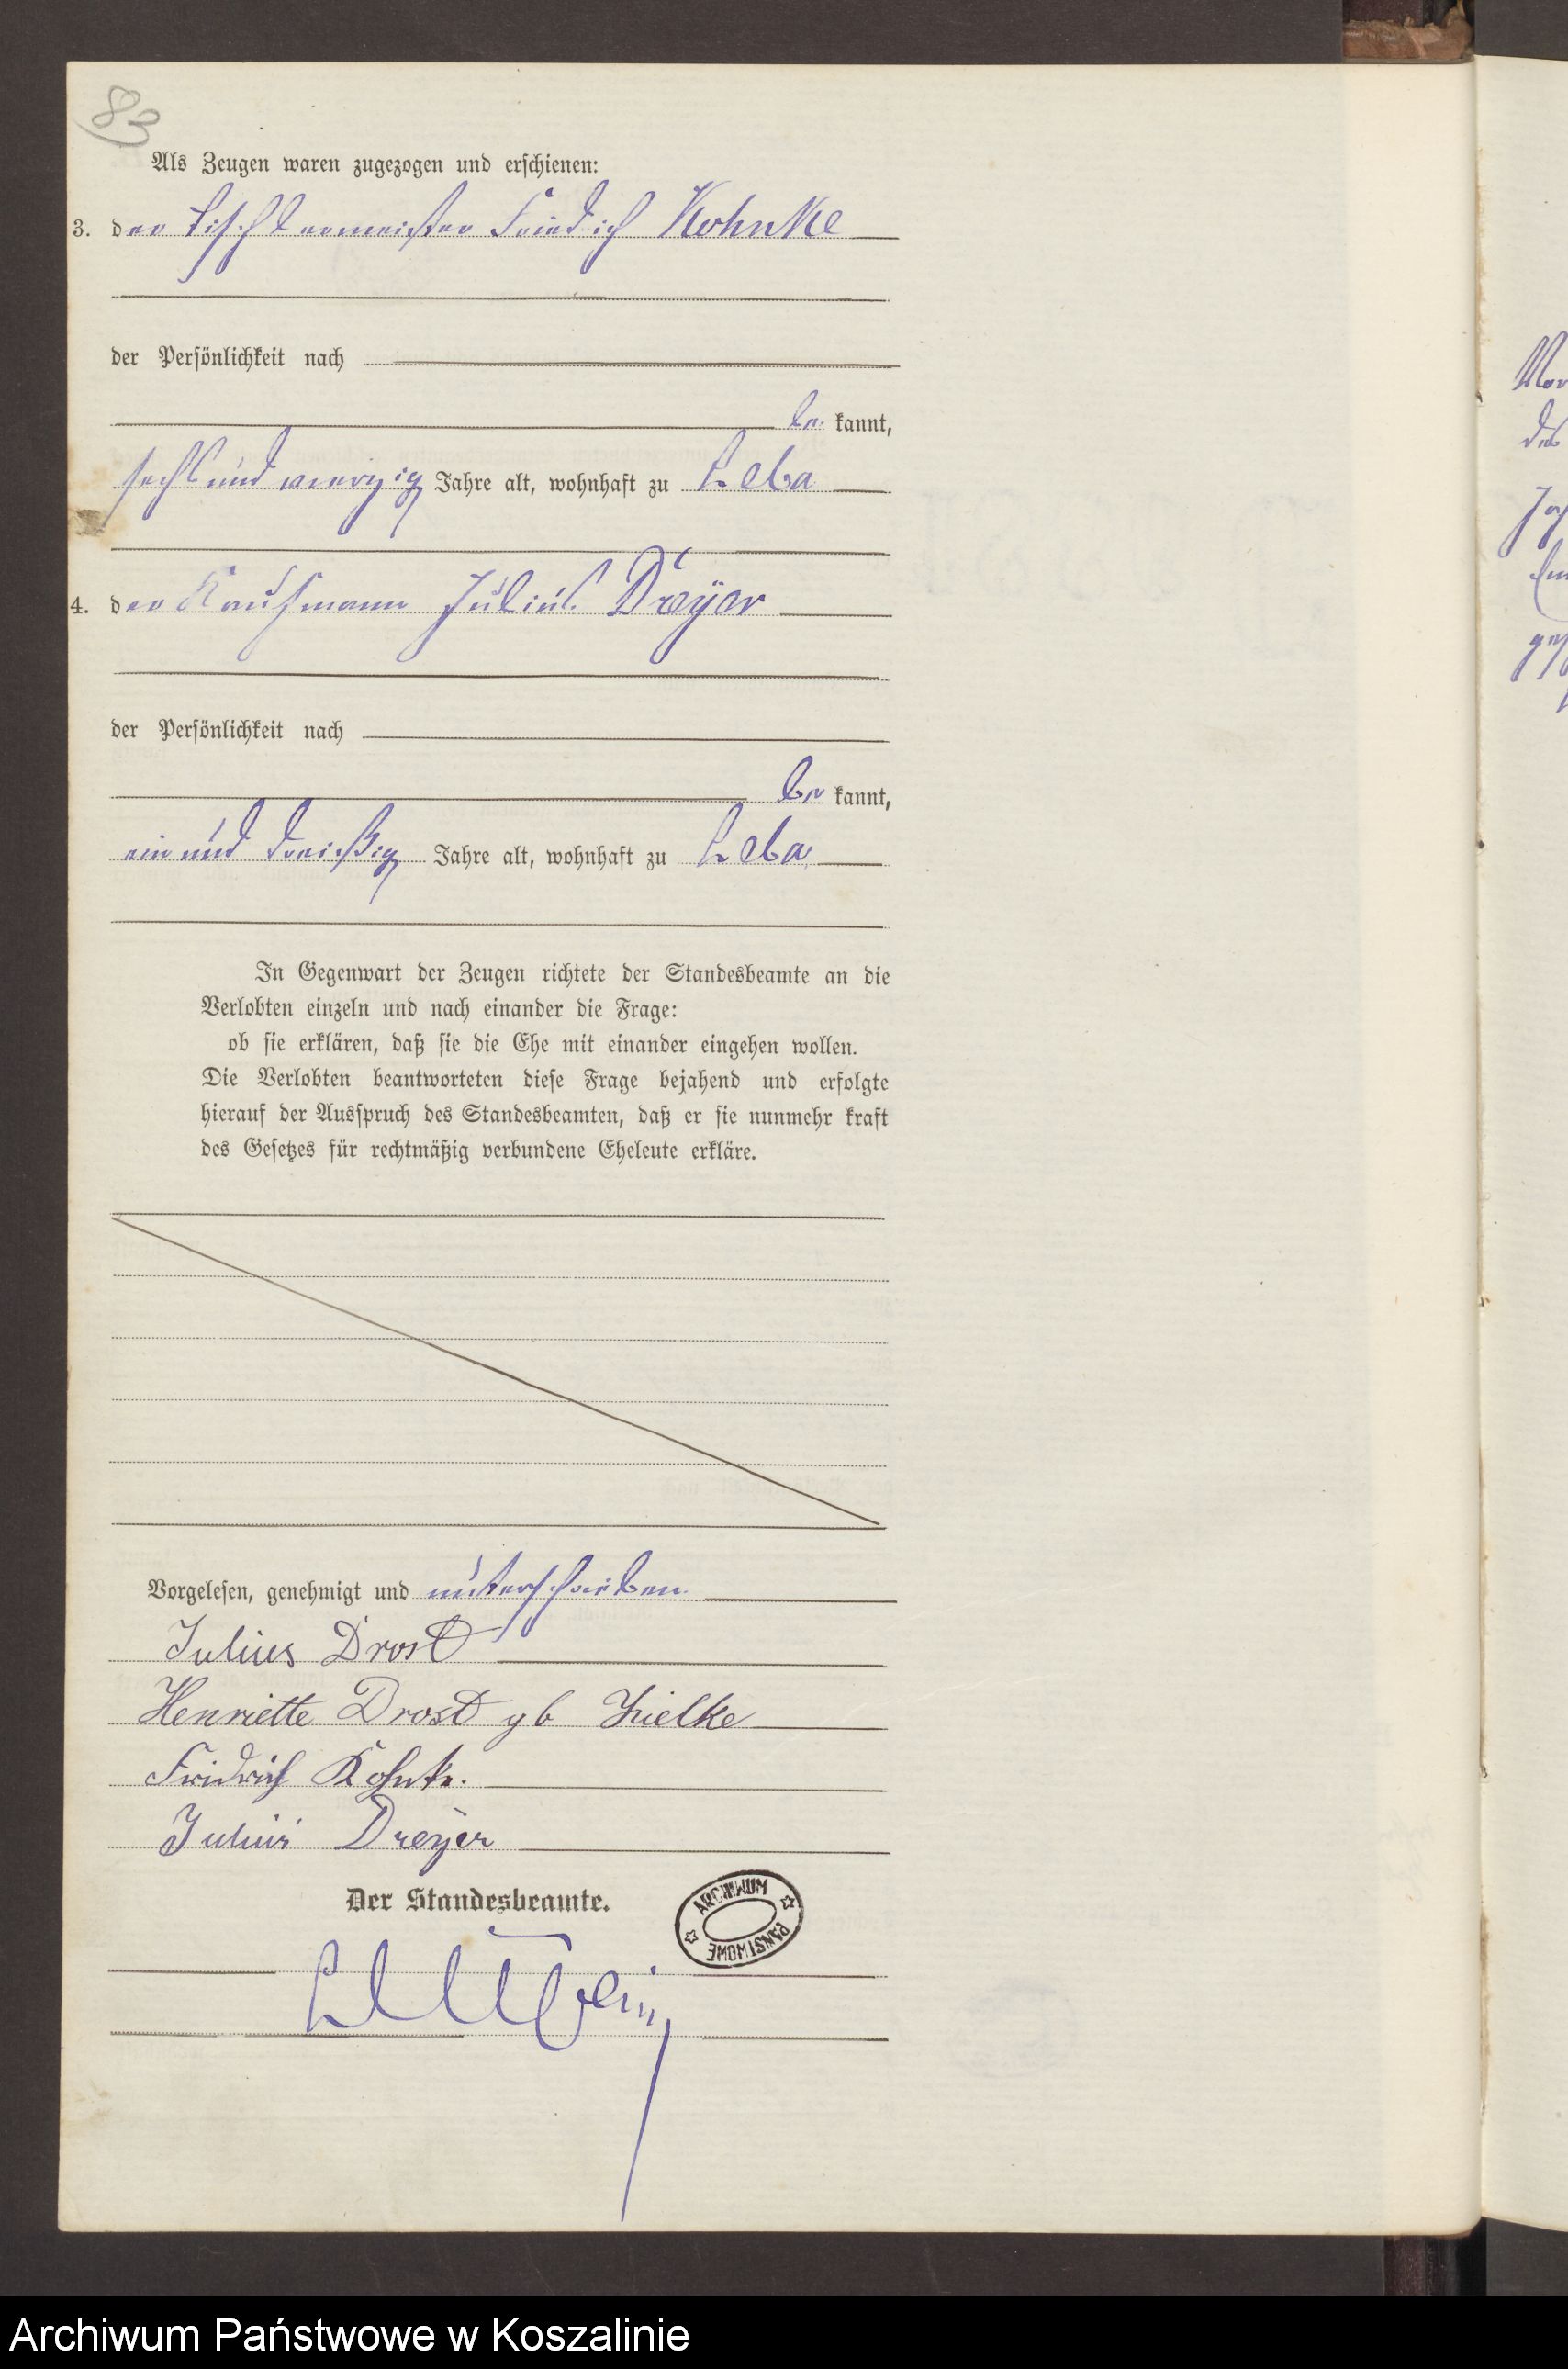 83
Als Zeugen waren zugezogen und erschienen:
3. der Tischlermeister Friedrich Kohnke
der Persönlichkeit nach
be kannt,
sechs und vierzig Jahre alt, wohnhaft zu Leba
4. der Kaufmann Julius Dreyer
der Persönlichkeit nach
be kannt,
ein und dreißig Jahre alt, wohnhaft zu Leba
In Gegenwart der Zeugen richtete der Standesbeamte an die
Verlobten einzeln und nach einander die Frage:
ob sie erklären, daß sie die Ehe mit einander eingehen wollen.
Die Verlobten beantworteten diese Frage bejahend und erfolgte
hierauf der Ausspruch des Standesbeamten, daß er sie nunmehr kraft
des Gesetzes für rechtmäßig verbundene Eheleute erkläre.
Vorgelesen, genehmigt und unterschrieben
Julius Drost
Henriette Drost gb
Fridrich Kohnke.
Julius Dreyer
Der Standesbeamte.
ARCHIWUM PAŃSTWOWE
Archiwum Państwowe w Koszalinie